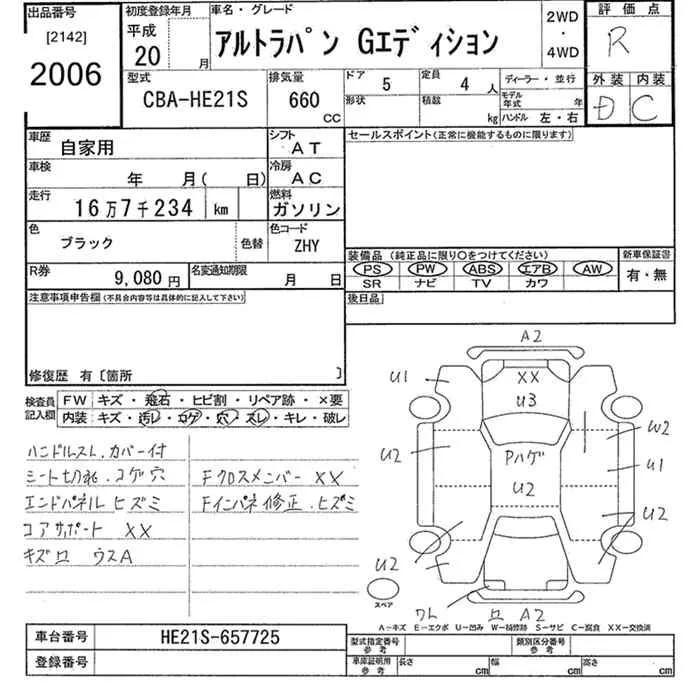 出品番号
[2142]
2006
初度登録年月
平成
20 月
車名・グレード
アルトラパン Gエディション
2WD
・
4WD
評価点
R
型式
CBA-HE21S
排気量
660
CC
ドア 5
定員 4 人
形状
積載 kg
ディーラー・並行
モデル年式 年
ハンドル 左・右
外装 内装
D C
車歴 自家用
シフト AT
車検 年 月( 日)
冷房 AC
走行 16万7千234 km
燃料 ガソリン
色 ブラック
色替
色コード ZHY
R券 9,080 円
名変通知期限 月 日
セールスポイント(正常に機能するものに限ります)
装備品 (純正品に限り○をつけてください)
PS PW ABS エアB AW
SR ナビ TV カワ
新車保証書
有・無
後日品
注意事項申告欄(不具合内容等は具体的に記入して下さい)
修復歴 有〔箇所 〕
検査員
記入欄
FW キズ・飛石・ヒビ割・リペア跡・×要
内装 キズ・汚レ・コゲ・穴・スレ・キレ・破レ
ハンドルスレ.カバー付
シート切れ.コゲ穴
Fクロスメンバー XX
エンドパネルヒズミ
Fインパネ修正.ヒズミ
コアサポート XX
キズロ ウスA
A2
U1
XX
U3
W2
U2
Pハゲ
U1
U2
U2
U2
スペア
ワレ
ロ A2
A−キズ E−エクボ U−凹み W−補修跡 S−サビ C−腐食 XX−交換済
車台番号 HE21S-657725
登録番号
型式指定番号
参考
類別区分番号
参考
車庫証明用
参考
長さ cm
幅 cm
高さ cm